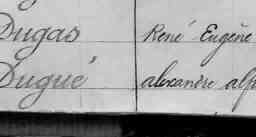 Dugas René Eugène
Dugué alexandre alp